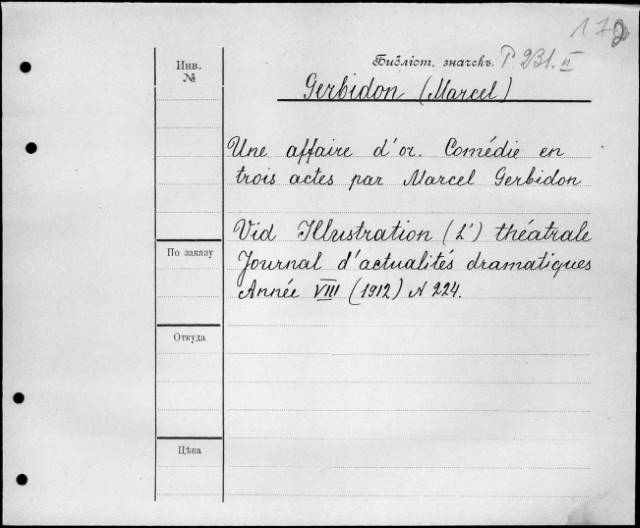 172
Инв.
№
Библіот. значекъ. P. 231. II
Gerbidon (Marcel)
Une affaire d'or. Comédie en
trois actes par Marcel Gerbidon
Vid Illustration (L') théatrale
Journal d'actualités dramatiques
Année VIII (1912) N 224.
По заказу
Откуда
Цѣна